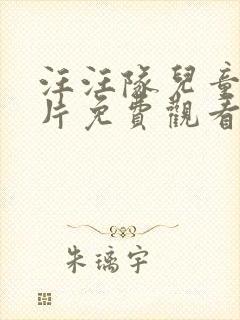 汪汪隊兒童
片免費觀看
朱璃宇